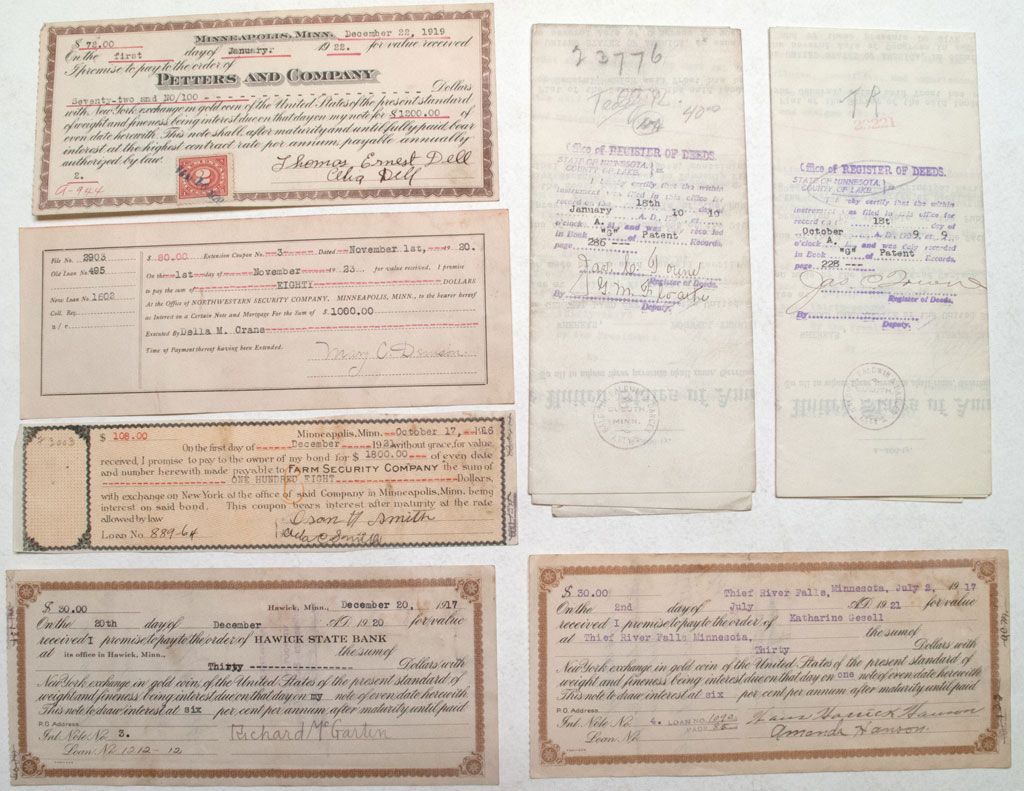 $ 72.00 MINNEAPOLIS, MINN. December 22, 1919
On the first day of January, 1922. for value received
I promise to pay to the order of
PETTERS AND COMPANY
Seventy-two and NO/100 - Dollars
with New York exchange in gold coin of the United States of the present standard
of weight and fineness being interest due on that day on my note for $1200.00 of
even date herewith. This note shall, after maturity and until fully paid bear
interest at the highest contract rate per annum, payable annually
authorized by law.
2.
Thomas Ernest Dell
Celia Dell
A-944
File No. 2903 $ 80.00 Extension Coupon No. 3 Dated November 1st, 1920.
Old Loan No. 495 On the 1st day of November 1923 for value received, I promise
to pay the sum of EIGHTY DOLLARS
New Loan No. 1602 At the Office of NORTHWESTERN SECURITY COMPANY, MINNEAPOLIS, MINN., to the bearer hereof
Coll. Reg. as Interest in a Certain Note and Mortgage For the Sum of $ 1000.00
a/c Executed By Della M. Crane
Time of Payment thereof having been Extended.
Mary C. Denison
$ 108.00 Minneapolis, Minn. October 17, 1916
On the first day of December 1921 without grace, for value
received, I promise to pay to the owner of my bond for $ 1800.00 of even date
and number herewith made payable to FARM SECURITY COMPANY the sum of
ONE HUNDRED EIGHT Dollars,
with exchange on New York at the office of said Company in Minneapolis, Minn. being
interest on said bond. This coupon bears interest after maturity at the rate
allowed by law
Loan No. 889-64
Smith
Smith
$ 30.00 Hawick, Minn., December 20, 1917
On the 20th day of December A.D. 1920 for value
received I promise to pay to the order of HAWICK STATE BANK
at its office in Hawick, Minn., the sum of
Thirty - Dollars with
New York exchange in gold coin of the United States of the present standard of
weight and fineness being interest due on that day on my note of even date herewith
This note to draw interest at six per cent per annum after maturity until paid
P.O. Address
Int. Note No. 3. Richard McGarlin
Loan No. 1212-12
23776
40
Office of REGISTER OF DEEDS.
STATE OF MINNESOTA,
COUNTY OF LAKE.
I hereby certify that the within
instrument was filed in this office for
record on the 18th day of
January A.D. 1910 10
o'clock A. M. and was recorded
in Book "G" of Patent Records,
page 286
Register of Deeds.
Deputy.
Office of REGISTER OF DEEDS.
STATE OF MINNESOTA,
COUNTY OF LAKE.
I hereby certify that the within
instrument was filed in this office for
record on the 1st day of
October A.D. 9 9
o'clock A. M. and was duly recorded
in Book "G" of Patent Records,
page 228
Register of Deeds.
By
Deputy.
Thief River Falls, Minnesota, July 2, 1917
$ 30.00
On the 2nd day of July A.D. 1921 for value
received I promise to pay to the order of Katharine Gesell
at Thief River Falls Minnesota, the sum of
Thirty Dollars with
New York exchange in gold coin of the United States of the present standard of
weight and fineness being interest due on that day on one note of even date herewith
This note to draw interest at six per cent per annum after maturity until paid
P.O. Address
Int. Note No. 4. LOAN NO. 1092
Loan No.
Hanson
Amanda Hanson